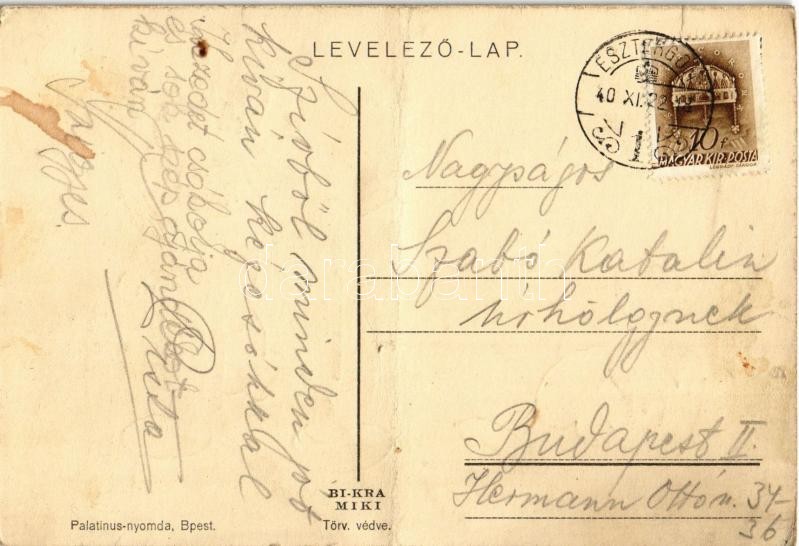 LEVELEZŐ-LAP.
ESZTERGOM
40 XI. 22
10 f
MAGYAR KIR. POSTA
Nagyságos
Szabó Katalin
úrhölgynek
Budapest II.
Hermann Ottó u. 34-
36
Szívből minden jót
kíván kézcsókkal
Pista
és sok szép
kíván
BI-KRA
MIKI
Törv. védve.
Palatinus-nyomda, Bpest.
darabanth